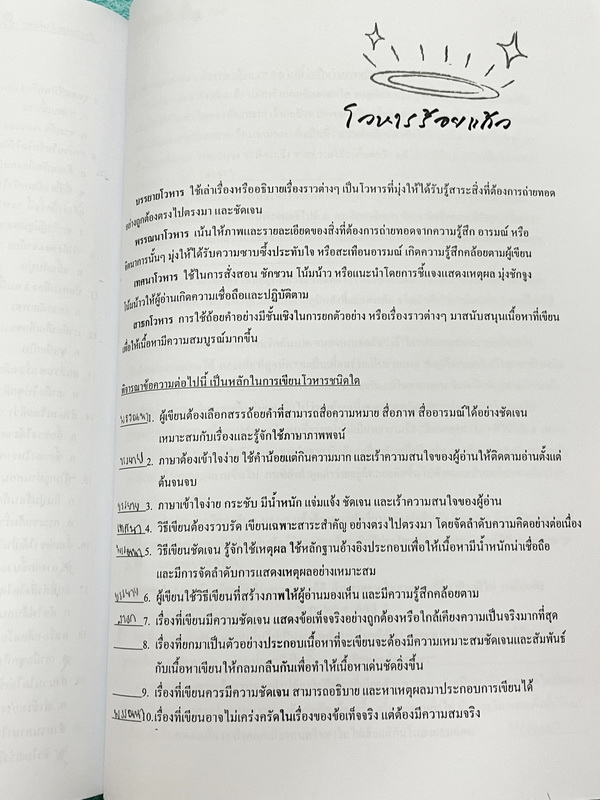 โวหารร้อยแก้ว
บรรยายโวหาร ใช้เล่าเรื่องหรืออธิบายเรื่องราวต่างๆ เป็นโวหารที่มุ่งให้ได้รับรู้สาระสิ่งที่ต้องการถ่ายทอด
อย่างถูกต้องตรงไปตรงมา และชัดเจน
พรรณนาโวหาร เน้นให้ภาพและรายละเอียดของสิ่งที่ต้องการถ่ายทอดจากความรู้สึก อารมณ์ หรือ
จินตนาการนั้นๆ มุ่งให้ได้รับความซาบซึ้งประทับใจ หรือสะเทือนอารมณ์ เกิดความรู้สึกคล้อยตามผู้เขียน
เทศนาโวหาร ใช้ในการสั่งสอน ชักชวน โน้มน้าว หรือแนะนำโดยการชี้แจงแสดงเหตุผล มุ่งชักจูง
โน้มน้าวให้ผู้อ่านเกิดความเชื่อถือและปฏิบัติตาม
สาธกโวหาร การใช้ถ้อยคำอย่างมีชั้นเชิงในการยกตัวอย่าง หรือเรื่องราวต่างๆ มาสนับสนุนเนื้อหาที่เขียน
เพื่อให้เนื้อหามีความสมบูรณ์มากขึ้น
พิจารณาข้อความต่อไปนี้ เป็นหลักในการเขียนโวหารชนิดใด
พรรณนา 1. ผู้เขียนต้องเลือกสรรถ้อยคำที่สามารถสื่อความหมาย สื่อภาพ สื่ออารมณ์ได้อย่างชัดเจน
เหมาะสมกับเรื่องและรู้จักใช้ภาษาภาพพจน์
2. ภาษาต้องเข้าใจง่าย ใช้คำน้อยแต่กินความมาก และเร้าความสนใจของผู้อ่านให้ติดตามอ่านตั้งแต่
ต้นจนจบ
3. ภาษาเข้าใจง่าย กระชับ มีน้ำหนัก แจ่มแจ้ง ชัดเจน และเร้าความสนใจของผู้อ่าน
เทศนา 4. วิธีเขียนต้องรวบรัด เขียนเฉพาะสาระสำคัญ อย่างตรงไปตรงมา โดยจัดลำดับความคิดอย่างต่อเนื่อง
5. วิธีเขียนชัดเจน รู้จักใช้เหตุผล ใช้หลักฐานอ้างอิงประกอบเพื่อให้เนื้อหามีน้ำหนักน่าเชื่อถือ
และมีการจัดลำดับการแสดงเหตุผลอย่างเหมาะสม
6. ผู้เขียนใช้วิธีเขียนที่สร้างภาพให้ผู้อ่านมองเห็น และมีความรู้สึกคล้อยตาม
7. เรื่องที่เขียนมีความชัดเจน แสดงข้อเท็จจริงอย่างถูกต้องหรือใกล้เคียงความเป็นจริงมากที่สุด
8. เรื่องที่ยกมาเป็นตัวอย่างประกอบเนื้อหาที่จะเขียนจะต้องมีความเหมาะสมชัดเจนและสัมพันธ์
กับเนื้อหาเขียนให้กลมกลืนกันเพื่อทำให้เนื้อหาเด่นชัดยิ่งขึ้น
9. เรื่องที่เขียนควรมีความชัดเจน สามารถอธิบาย และหาเหตุผลมาประกอบการเขียนได้
พรรณนา 10. เรื่องที่เขียนอาจไม่เคร่งครัดในเรื่องของข้อเท็จจริง แต่ต้องมีความสมจริง